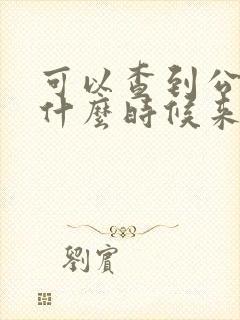 可以查到公
什麼時候來
劉賓